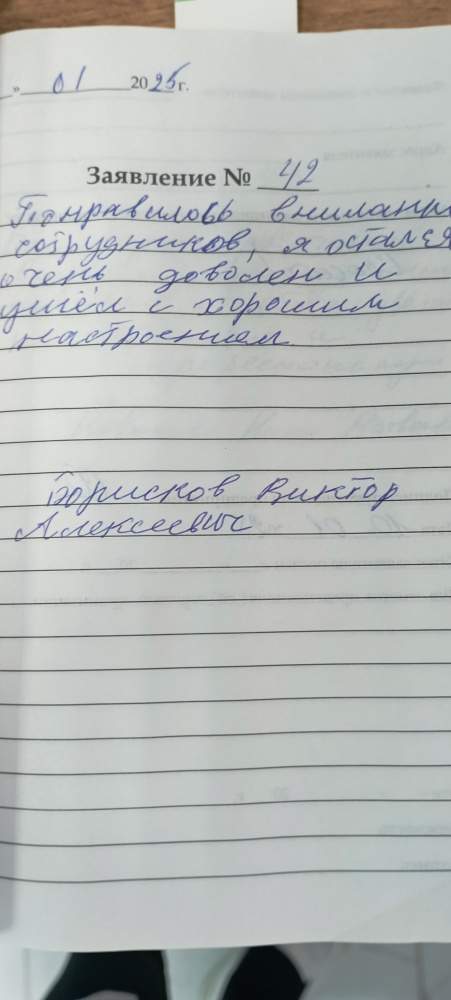 » 01 2025г.
Заявление № 42
Панравилось внимание
сотрудников, я остался
очень доволен и
ушёл с хорошим
настроением
Борисков Виктор
Алексеевич